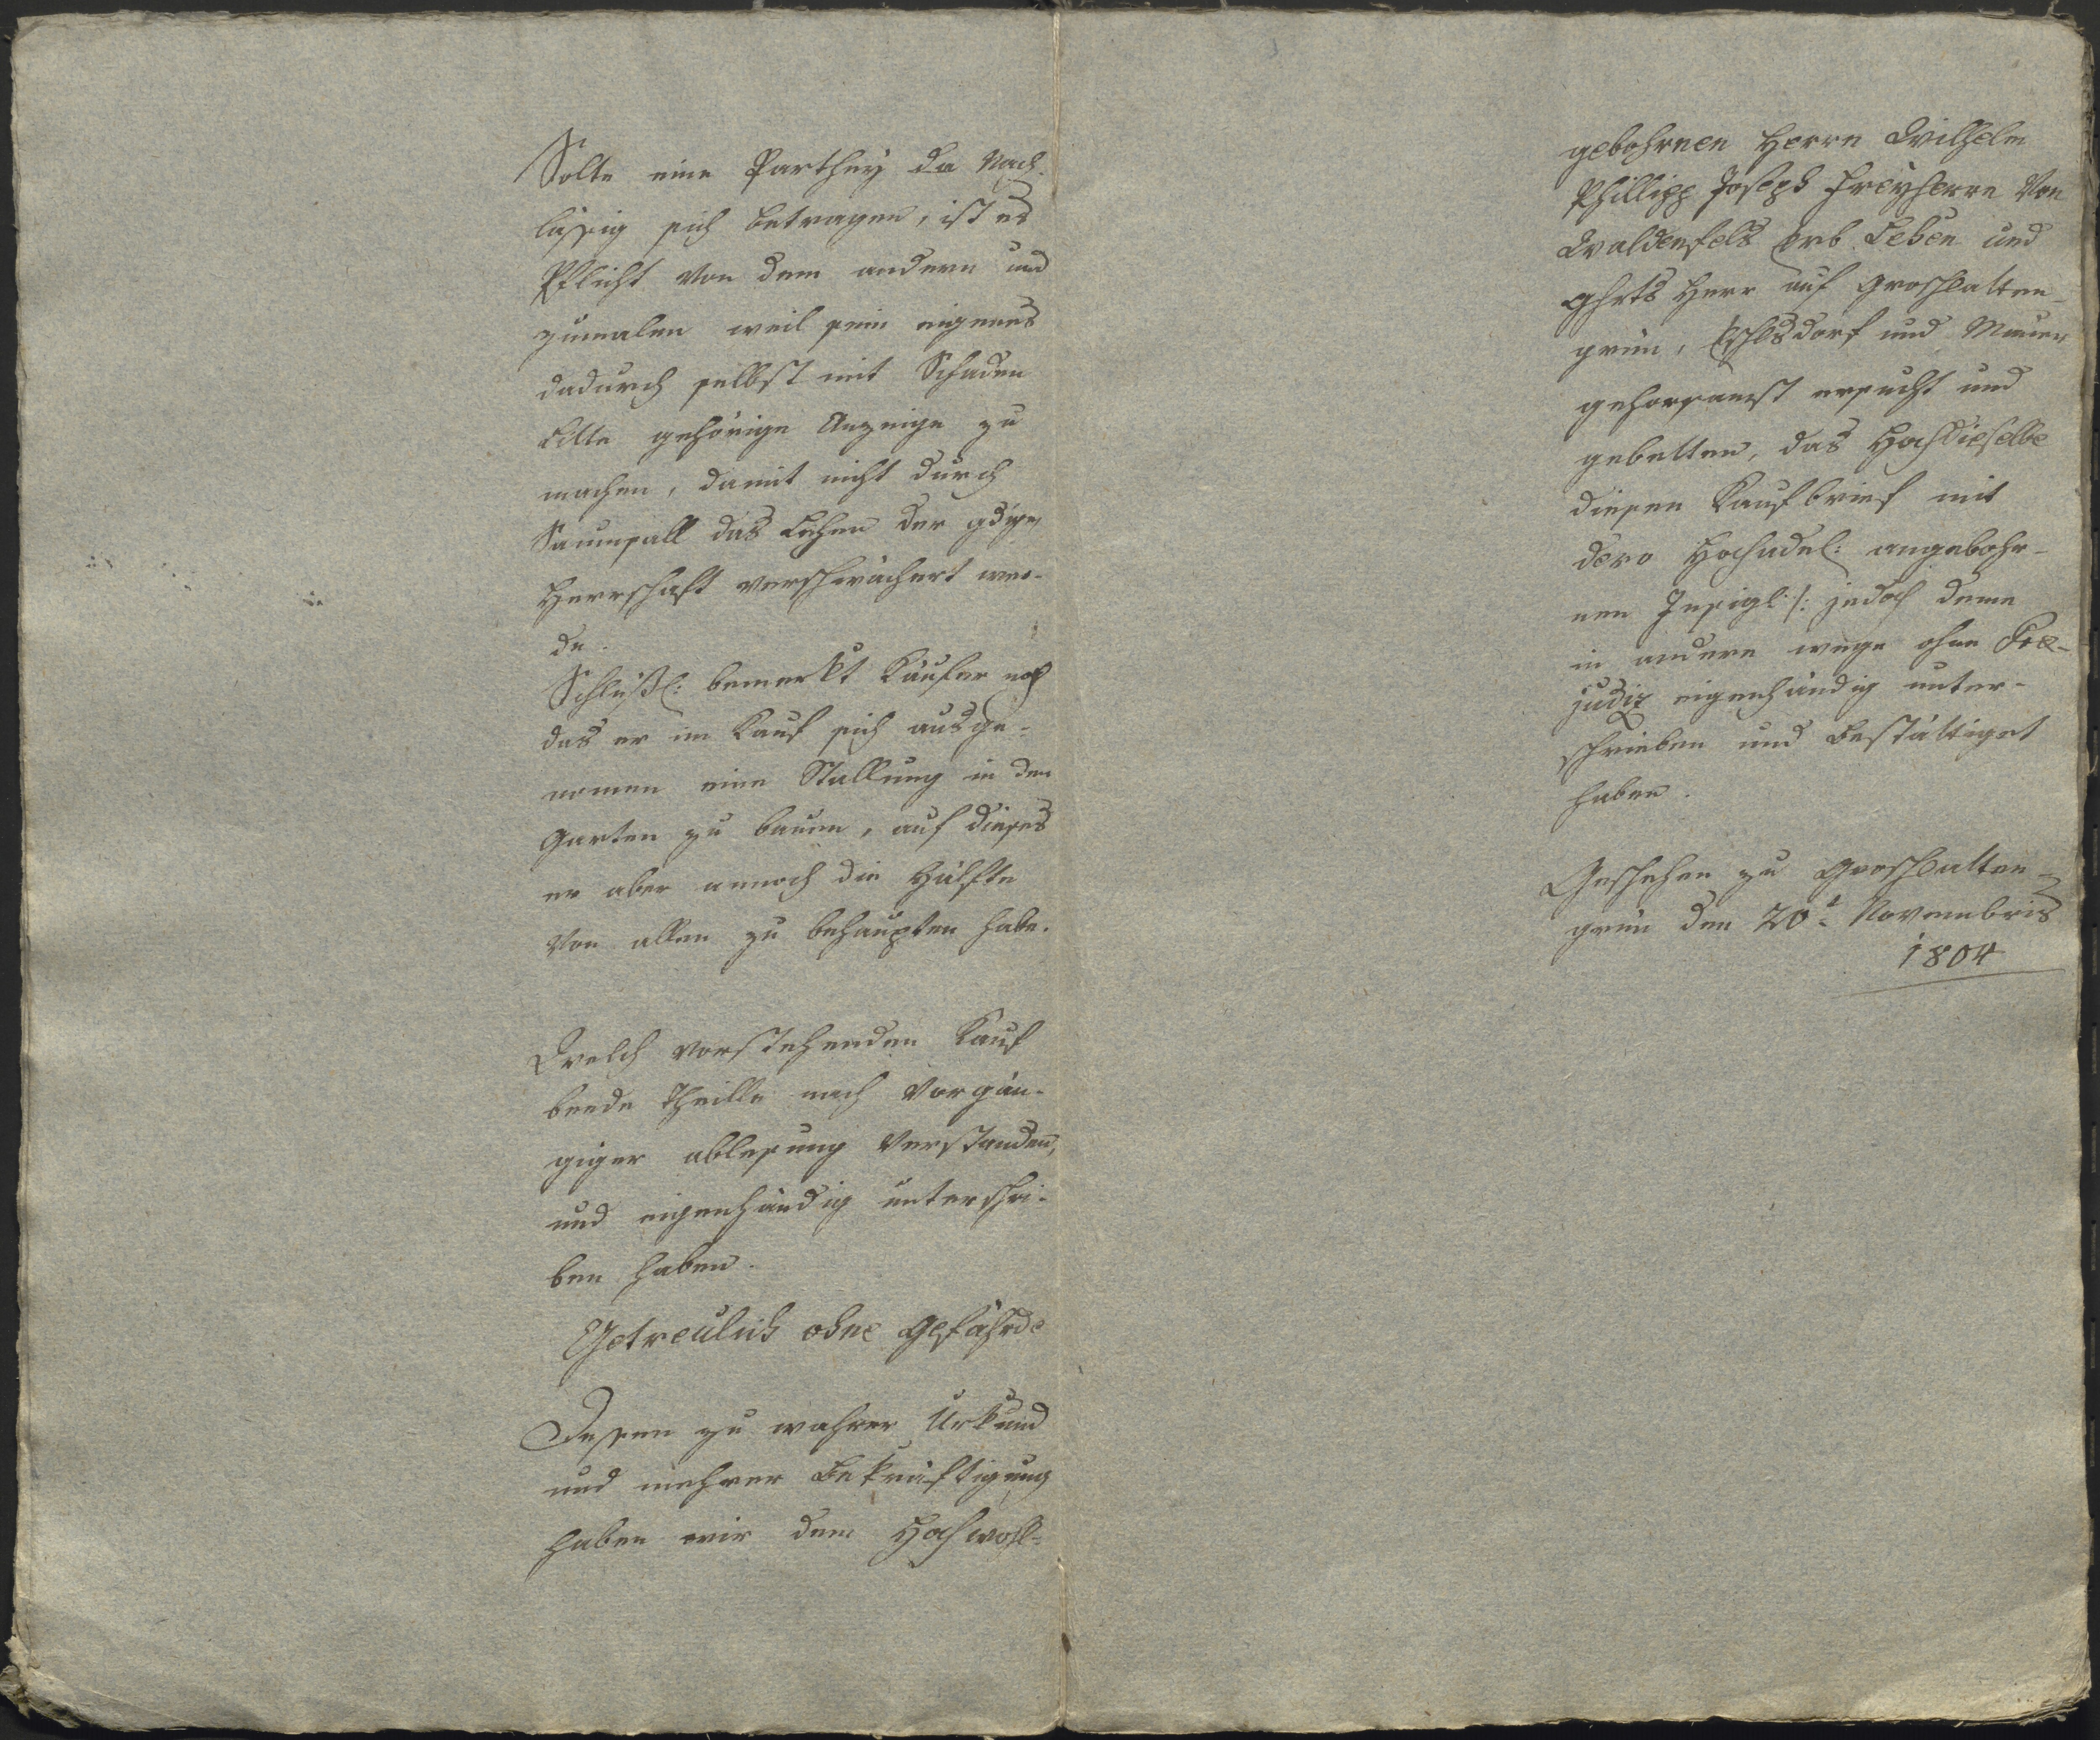 Solte eine Parthey da Nach-
lässig sich betragen, ist es
Pflicht von dem andern und
zumalen weil sein eigenes
dadurch selbst mit Schaden
Litte gehörige Anzeige zu
machen, damit nicht durch
Saumsall das Lehen der gdigen
Herrschaft verschwächert wer-
de.
Schlüßl: bemerkt Käufer noch
das er im Kauf sich ausge-
nomen eine Stallung in den
Garten zu bauen, auf dieses
er aber annoch die Hälfte
von allen zu behaupten habe.
Welch vorstehenden Kauf
beede Theille nach vorgän-
giger ablesung verstanden,
und eigenhändig unterschri-
ben haben.
Getreulich ohne Gefährde
Dessen zu wahrer Urkund
und mehrer Bekräftigung
haben wir dem Hochwohl-
gebohrnen Herrn Wilhelm
Phillipp Joseph Freyherrn von
Waldenfels Erb Lehen und
Ghrts Herr auf Groschlatten-
grün, und
gehorsamst ersucht und
gebetten, das Hochdieselbe
diesen Kaufbrief mit
dero Hochadel: angebohr-
nen Insigl /: jedoch deme
in andere wege ohne Prae-
judiz eigenhändig unter-
schrieben und Bestättiget
haben.
Geschehen zu Groschlatten-
grün den 20t Novembris
1804